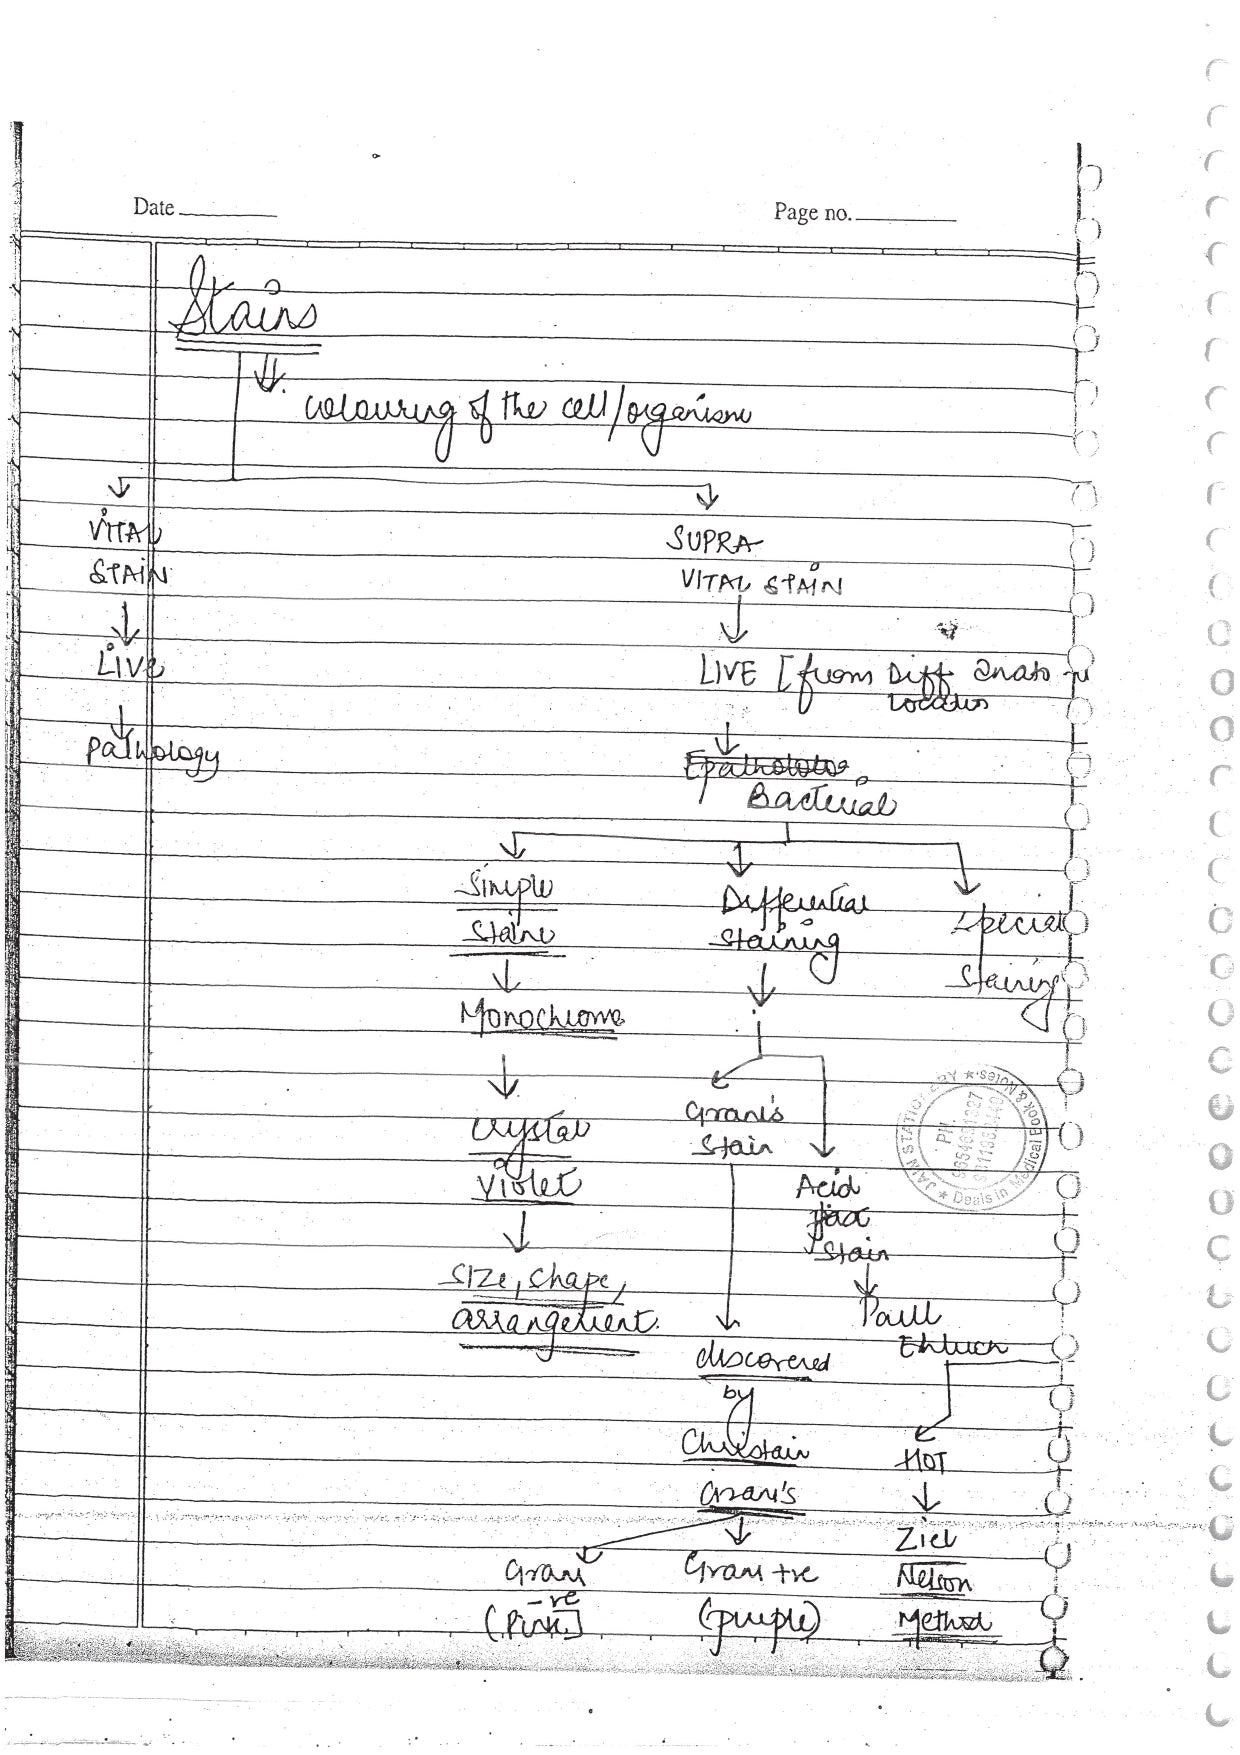 Date
Page no.
Stains
colouring of the cell/organism
VITAL
STAIN
SUPRA
VITAL STAIN
LIVE
LIVE [from Diff anato
Pathology
Bacterial
Simple
Stain
Differential
Staining
Special
Staining
Monochrome
Gram's
Stain
Crystal
Violet
Acid
Stain
Size, shape,
arrangement.
Paul
Ehluch
discovered
by
Christain
Gram's
HOT
Ziel
Nelson
Method
Gram
-ve
(Pink]
Gram +ve
(purple)
JAIN STATIONERY ★
Book & Notes
★ Deals in Medical
PH.